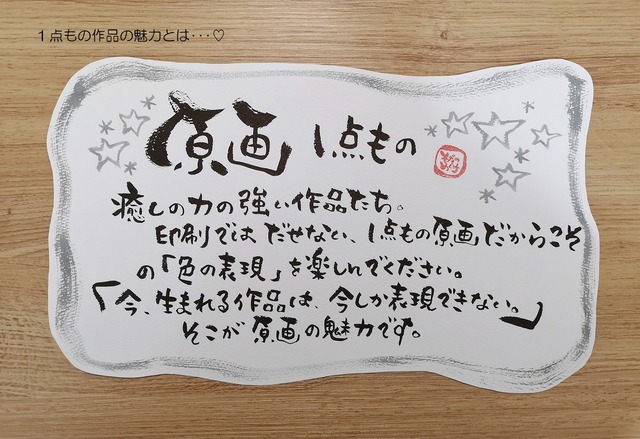 1点もの作品の魅力とは･･･♡
原画 1点もの
癒しの力の強い作品たち。
印刷ではだせない、1点もの原画だからこそ
の「色の表現」を楽しんでください。
「今、生まれる作品は、今しか表現できない。」
そこが原画の魅力です。